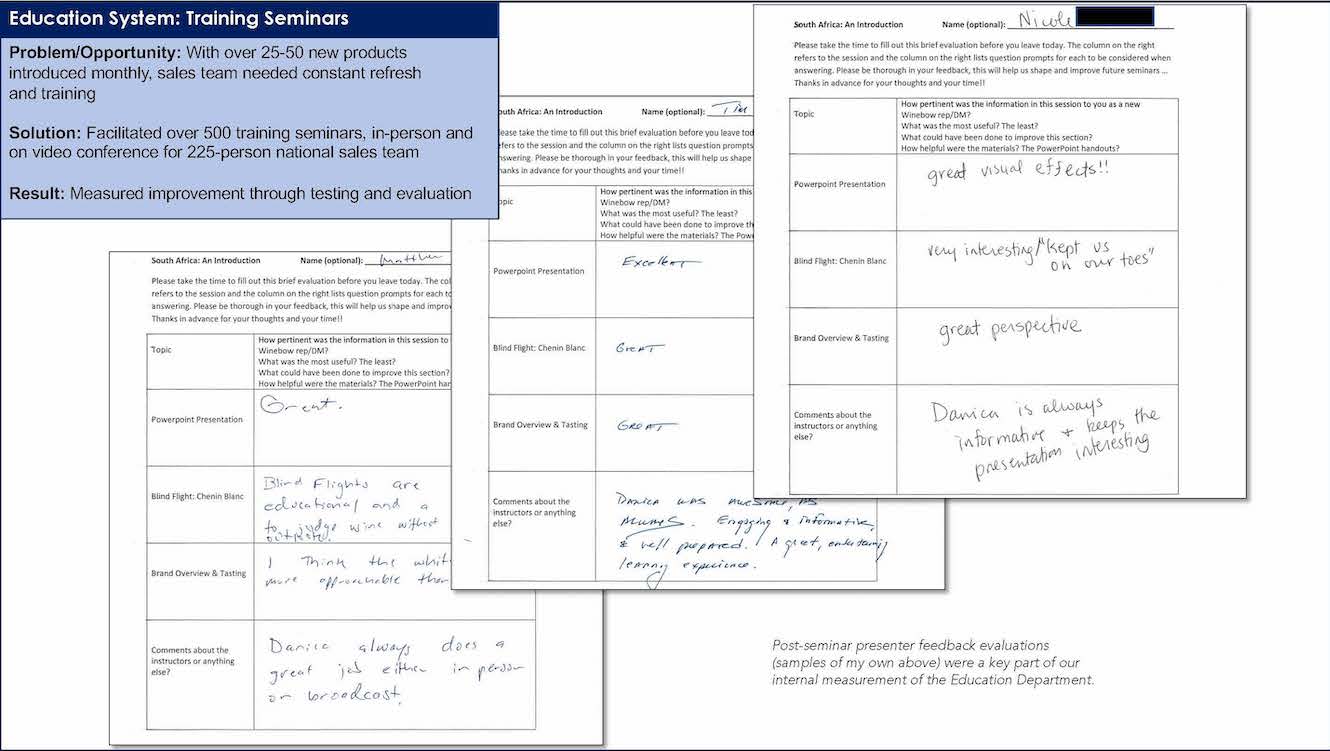 Education System: Training Seminars
Problem/Opportunity: With over 25-50 new products
introduced monthly, sales team needed constant refresh
and training
Solution: Facilitated over 500 training seminars, in-person and
on video conference for 225-person national sales team
Result: Measured improvement through testing and evaluation
South Africa: An Introduction Name (optional): Matthew
Please take the time to fill out this brief evaluation before you leave today. The col
refers to the session and the column on the right lists question prompts for each to
answering. Please be thorough in your feedback, this will help us shape and improv
Thanks in advance for your thoughts and your time!!
Topic
How pertinent was the information in this session to
Winebow rep/DM?
What was the most useful? The least?
What could have been done to improve this section?
How helpful were the materials? The PowerPoint han
Powerpoint Presentation
Great.
Blind Flight: Chenin Blanc
Blind Flights are
educational and a
to judge wine without
Brand Overview & Tasting
I Think the whit
more approachable than
Comments about the
instructors or anything
else?
Danica always does a
great job either in person
or broadcast.
outh Africa: An Introduction Name (optional): Tim
lease take the time to fill out this brief evaluation before you leave tod
efers to the session and the column on the right lists question prompts
nswering. Please be thorough in your feedback, this will help us shape
hanks in advance for your thoughts and your time!!
opic
How pertinent was the information in this
Winebow rep/DM?
What was the most useful? The least?
What could have been done to improve th
How helpful were the materials? The Powe
Powerpoint Presentation
Excellent
Blind Flight: Chenin Blanc
Great
Brand Overview & Tasting
Great
Comments about the
instructors or anything
else?
Danica was awesome, as
always. Engaging & informative,
& well prepared. A great, entertaining
learning experience.
South Africa: An Introduction Name (optional): Nicole
Please take the time to fill out this brief evaluation before you leave today. The column on the right
refers to the session and the column on the right lists question prompts for each to be considered when
answering. Please be thorough in your feedback, this will help us shape and improve future seminars ...
Thanks in advance for your thoughts and your time!!
Topic
How pertinent was the information in this session to you as a new
Winebow rep/DM?
What was the most useful? The least?
What could have been done to improve this section?
How helpful were the materials? The PowerPoint handouts?
Powerpoint Presentation
great visual effects!!
Blind Flight: Chenin Blanc
very interesting/"kept us
on our toes"
Brand Overview & Tasting
great perspective
Comments about the
instructors or anything
else?
Danica is always
informative + keeps the
presentation interesting
Post-seminar presenter feedback evaluations
(samples of my own above) were a key part of our
internal measurement of the Education Department.